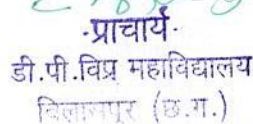 ·प्राचार्य·
डी.पी.विप्र महाविद्यालय
बिलासपुर (छ.ग.)